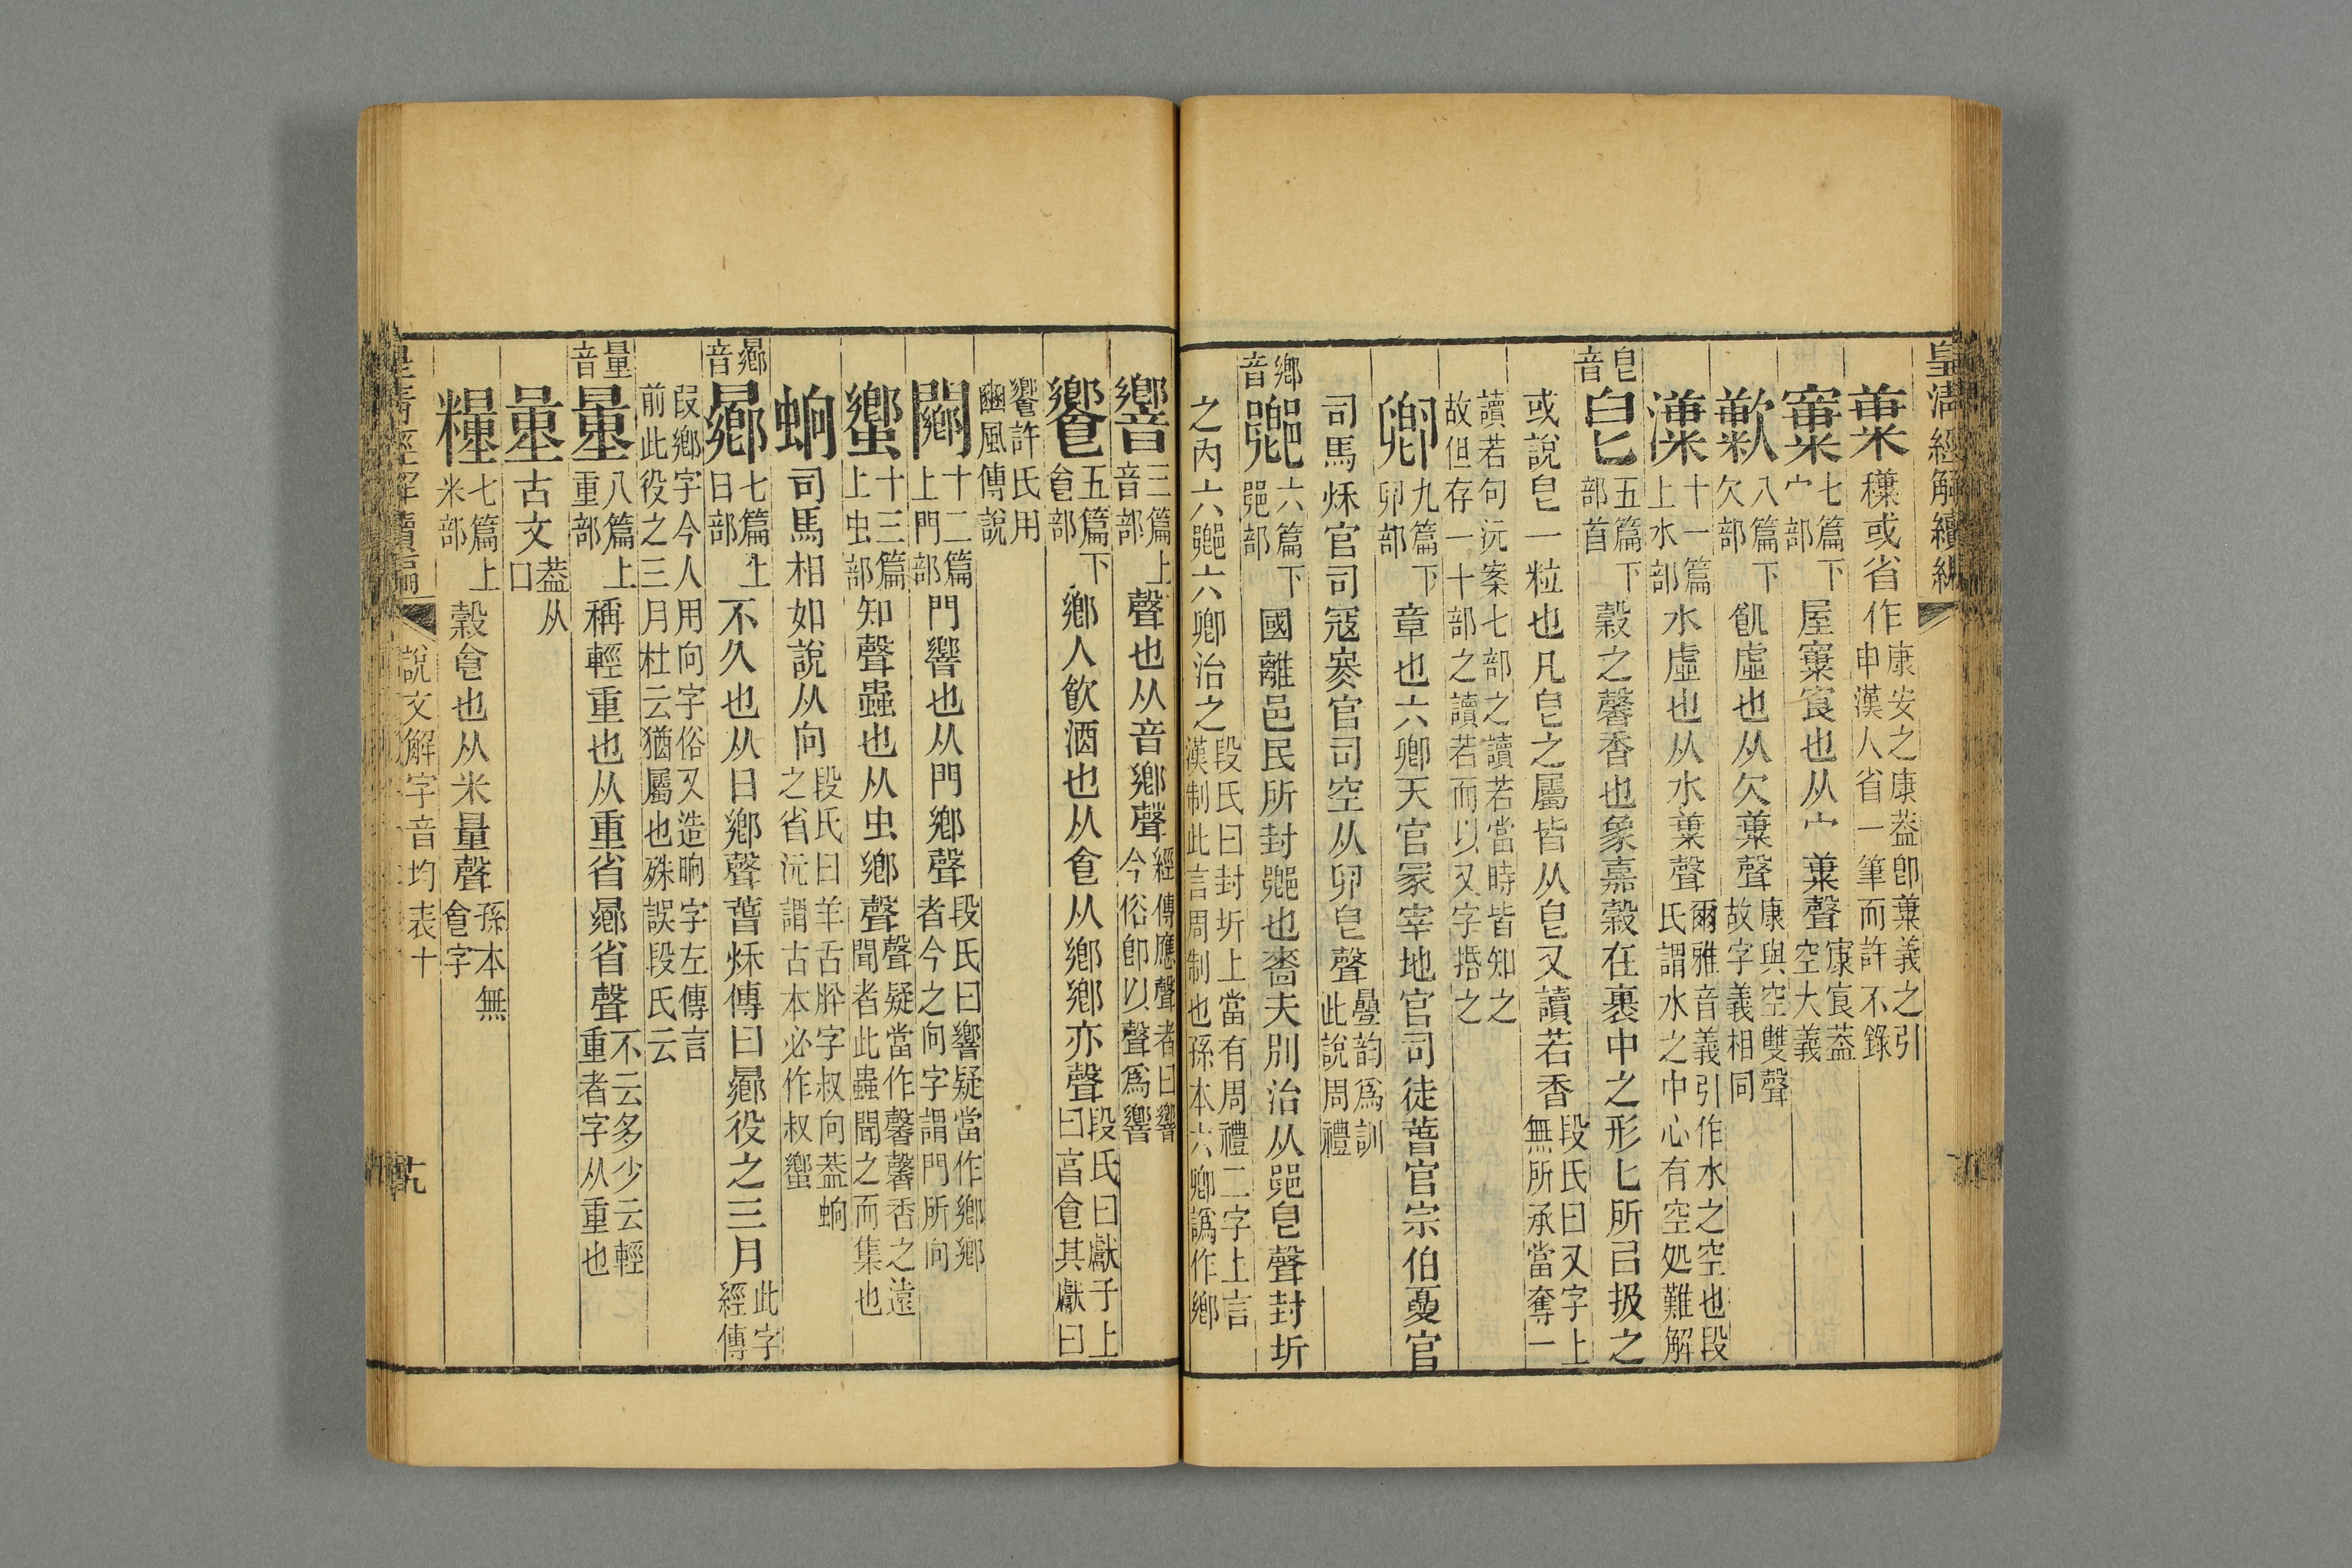 皇清經解續編
穅或省作康安之康葢卽𥹺義之引申漢人省一筆而許不錄
七篇下宀部屋㝩㝗也从宀聲康㝗葢空大義
歉八篇下欠部飢虛也从欠聲康與空雙聲故字義相同
漮十一篇上水部水虛也从水聲爾雅音義引作水之空也段氏謂水之中心有空処難解
皀音皀五篇下部首穀之馨香也象嘉穀在裹中之形匕所㠯扱之
或說皀一粒也凡皀之屬皆从皀又讀若香段氏曰又字上無所承當奪一
讀若句沅案七部之讀若當時皆知之故但存一十部之讀若而以又字揞之
卿九篇下卯部章也六卿天官冢宰地官司徒萅官宗伯夏官
司馬秌官司寇冬官司空从卯皀聲曡韵爲訓此說周禮
鄉音六篇下部國離邑民所封鄉也嗇夫別治从皀聲封圻
之內六鄉六卿治之段氏曰封圻上當有周禮二字上言漢制此言周制也孫本六卿譌作鄉
響三篇上音部聲也从音鄉聲經傳應聲者曰響今俗卽以聲爲響
饗五篇下食部鄉人飮酒也从食从鄉鄉亦聲段氏曰獻子上曰亯食其獻曰
饗許氏用豳風傳說
闀十二篇上門部門響也从門鄉聲段氏曰響疑當作鄉鄉者今之向字謂門所向
蠁十三篇上虫部知聲蟲也从虫鄉聲聲疑當作馨馨香之遠聞者此蟲聞之而集也
蚼司馬相如說从向段氏曰羊舌肸字叔向葢蚼之省沅謂古本必作叔蠁
曏音曏七篇上日部不久也从日鄉聲萅秌傳曰曏役之三月此字經傳
段鄉字今人用向字俗又造晌字左傳言前此役之三月杜云猶屬也殊誤段氏云
量音量八篇上重部稱輕重也从重省曏省聲不云多少云輕重者字从重也
古文葢从口
糧七篇上米部穀食也从米量聲孫本無食字
皇清經解續編 說文解字音均表十